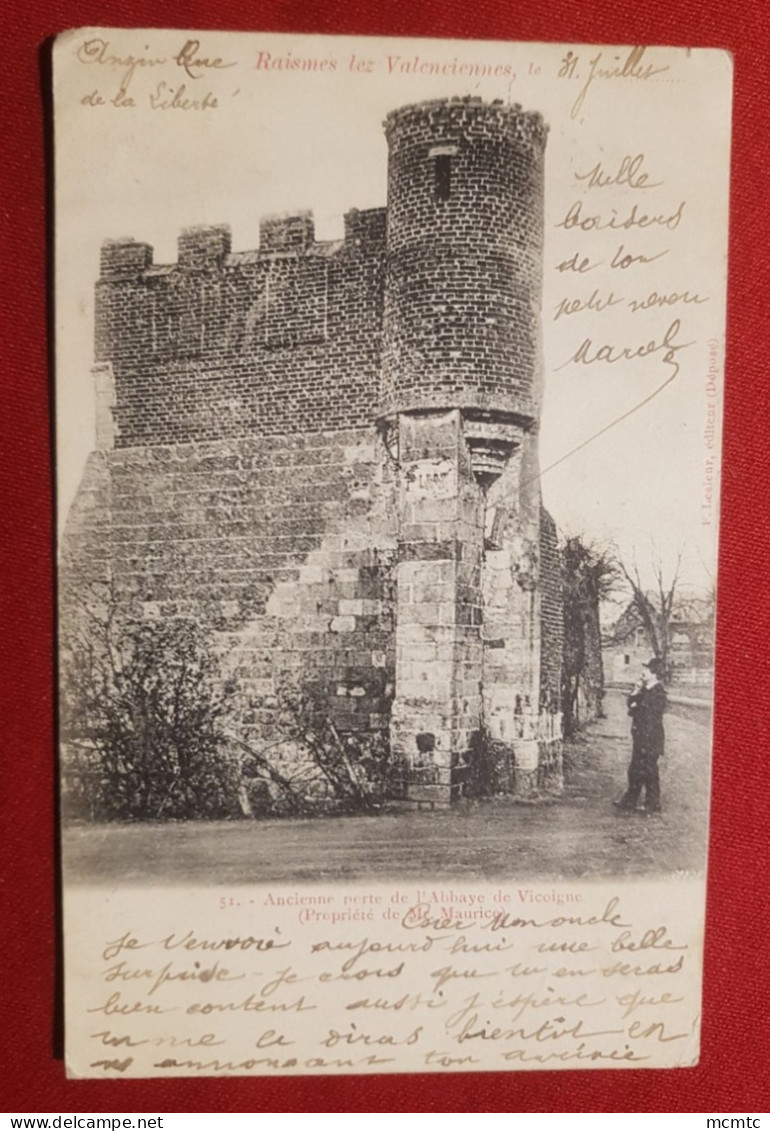 Raismes lez Valenciennes, le 31 Juillet
Anzin Rue
de la Liberté
Mille
baisers
de ton
petit neveu
Marcel
F. Lesieur, éditeur (Déposé)
51. - Ancienne porte de l'Abbaye de Vicoigne
(Propriété de Mr. Maurice)
Cher Mon oncle
Je t'envoie aujourd'hui une belle
surprise - je crois que tu en seras
bien content aussi j'espère que
tu me le diras bientôt en
m'annoncant ton arrivée
mcmtc
Delcampe.net